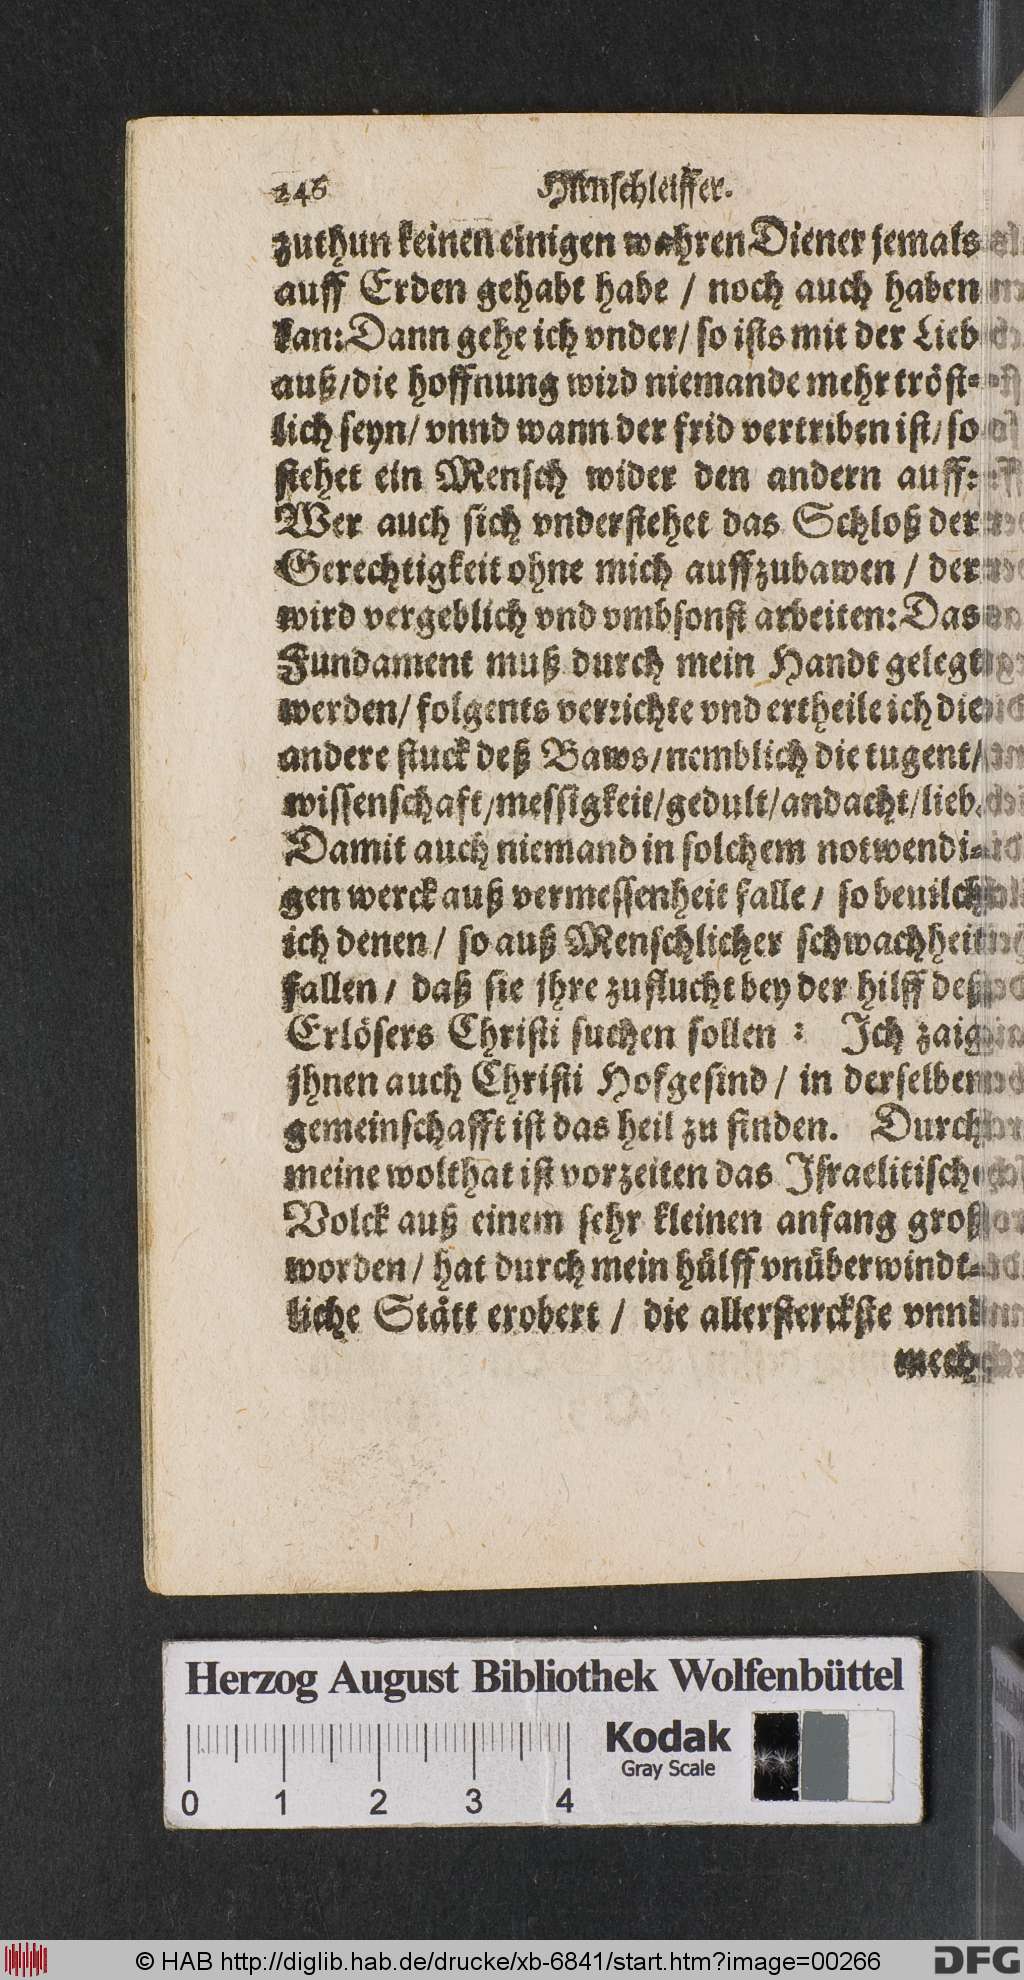 246 Hirnschleiffer.
zuthun keinen einigen wahren Diener jemals
auff Erden gehabt habe / noch auch haben
kan: Dann gehe ich vnder / so ists mit der Lieb
auß / die hoffnung wird niemande mehr tröst-
lich seyn / vnnd wann der frid vertriben ist / so
stehet ein Mensch wider den andern auff:
Wer auch sich vnderstehet das Schloß der
Gerechtigkeit ohne mich auffzubawen / der
wird vergeblich vnd vmbsonst arbeiten: Das
Fundament muß durch mein Handt gelegt
werden / folgents verrichte vnd ertheile ich die
andere stuck deß Baws / nemblich die tugent /
wissenschaft / messigkeit / gedult / andacht / lieb.
Damit auch niemand in solchem notwendi-
gen werck auß vermessenheit falle / so beuilch
ich denen / so auß Menschlicher schwachheit
fallen / daß sie jhre zuflucht bey der hilff deß
Erlösers Christi suchen sollen : Ich zaig
jhnen auch Christi Hofgesind / in derselben
gemeinschafft ist das heil zu finden. Durch
meine wolthat ist vorzeiten das Israelitisch
Volck auß einem sehr kleinen anfang groß
worden / hat durch mein hülff vnüberwindt-
liche Stätt erobert / die allersterckste vnnd
mech
Herzog August Bibliothek Wolfenbüttel
Kodak
Gray Scale
0 1 2 3 4
© HAB http://diglib.hab.de/drucke/xb-6841/start.htm?image=00266 DFG